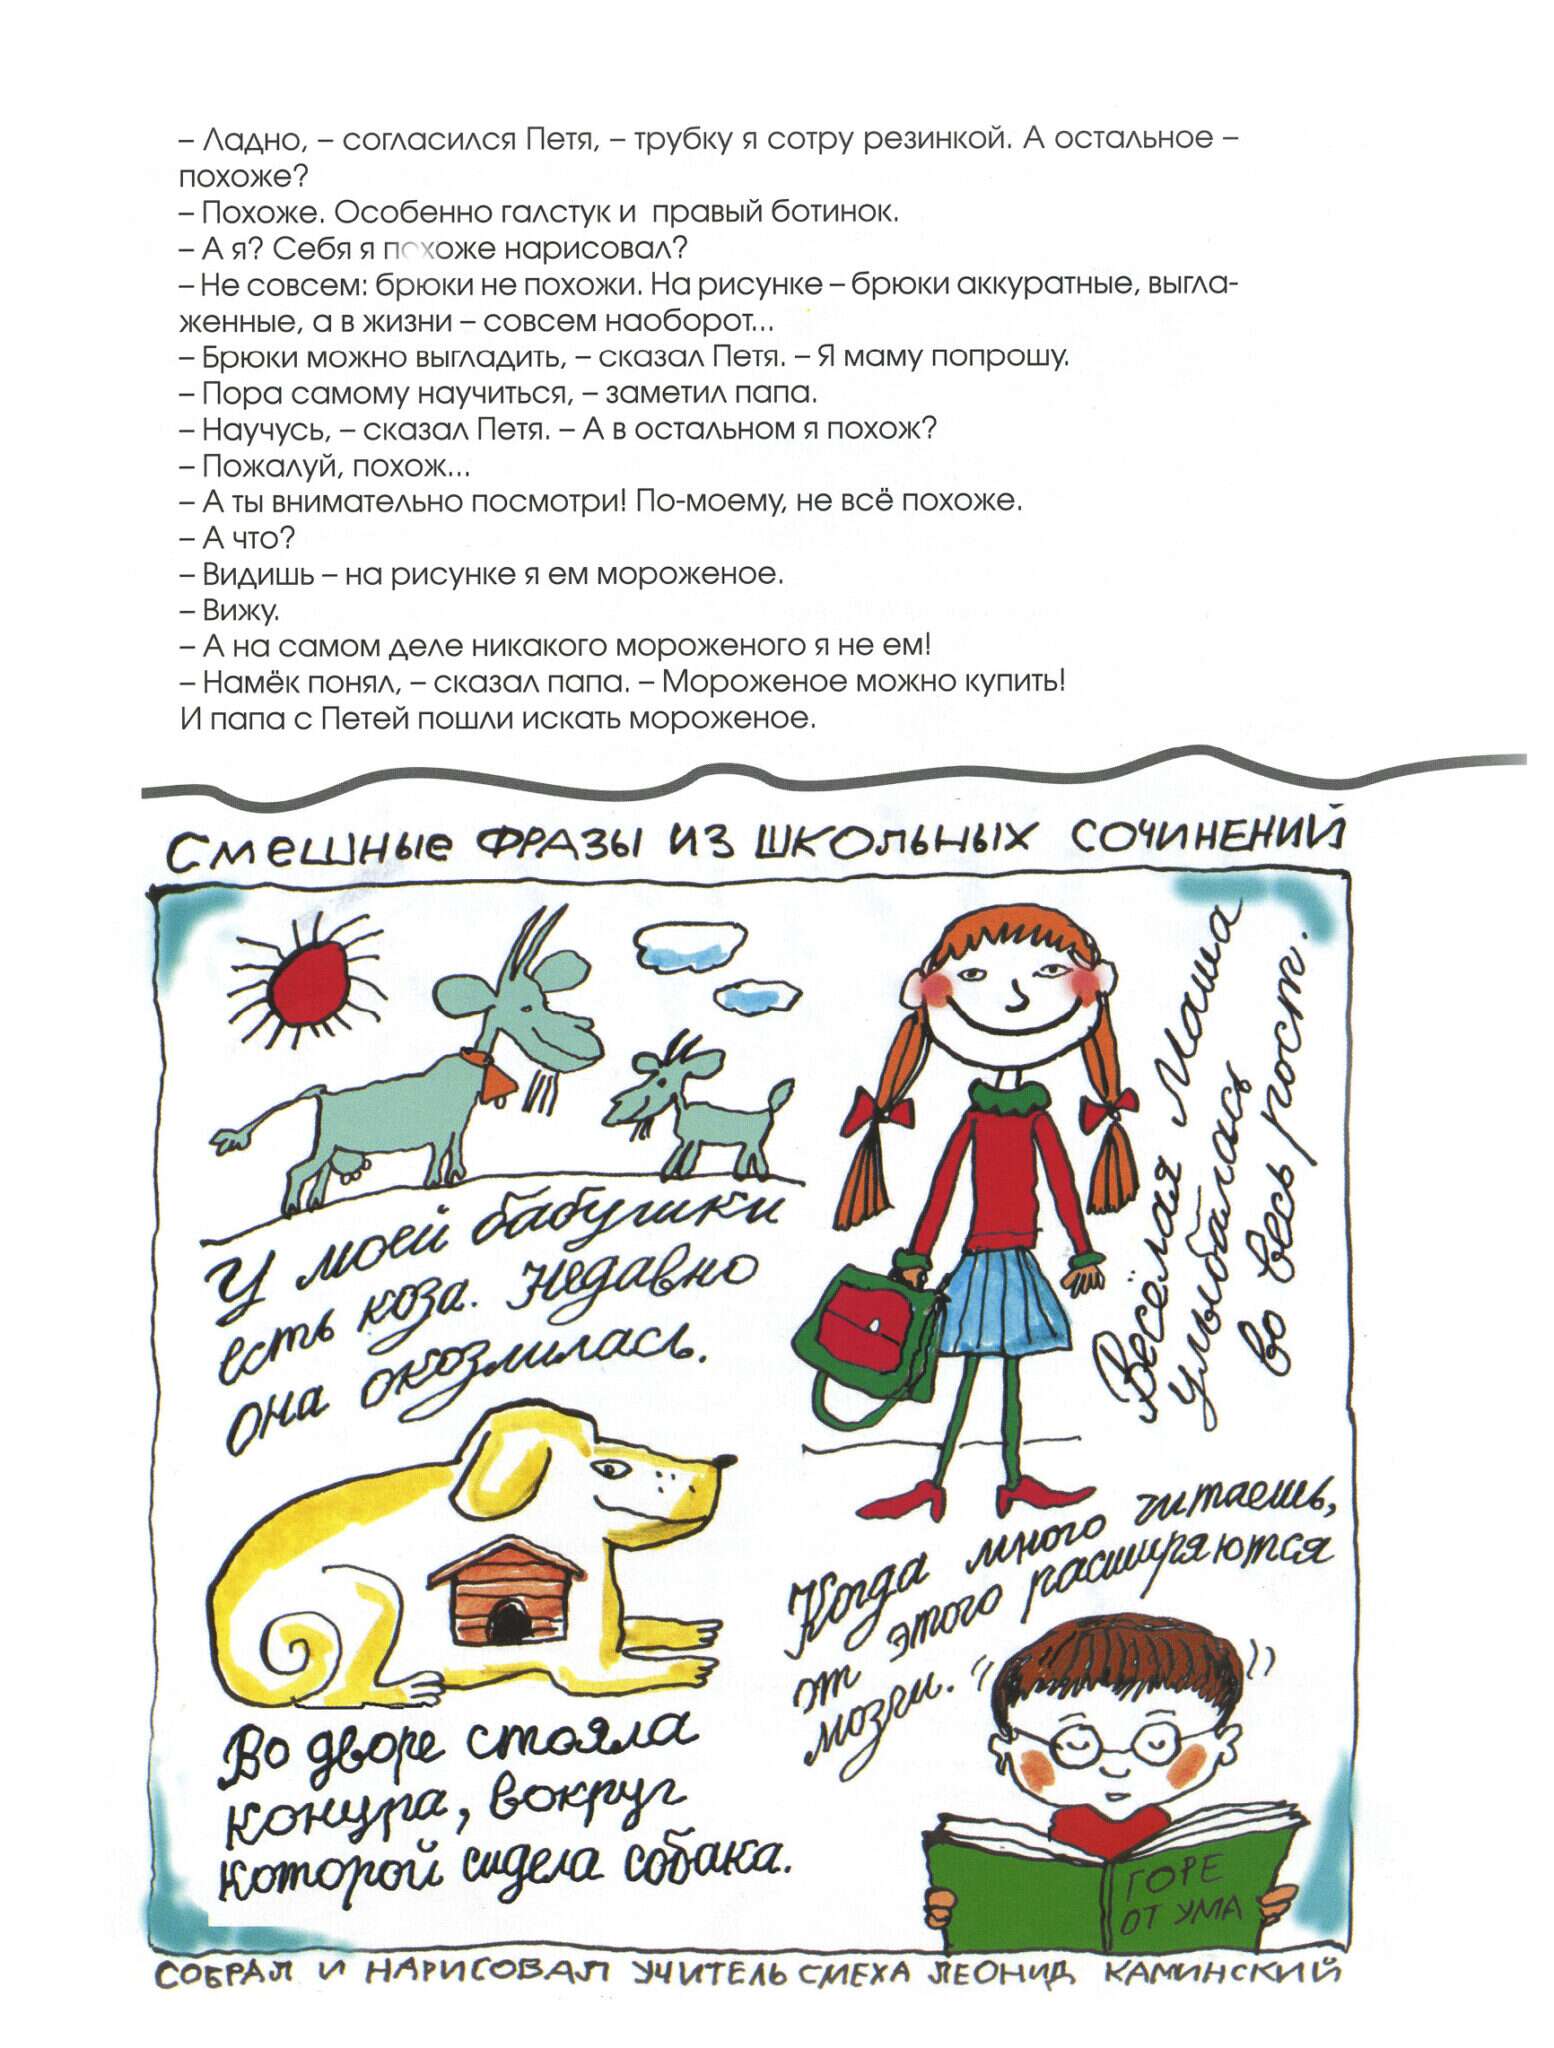 – Ладно, – согласился Петя, – трубку я сотру резинкой. А остальное –
похоже?
– Похоже. Особенно галстук и правый ботинок.
– А я? Себя я похоже нарисовал?
– Не совсем: брюки не похожи. На рисунке – брюки аккуратные, выгла-
женные, а в жизни – совсем наоборот...
– Брюки можно выгладить, – сказал Петя. – Я маму попрошу.
– Пора самому научиться, – заметил папа.
– Научусь, – сказал Петя. – А в остальном я похож?
– Пожалуй, похож...
– А ты внимательно посмотри! По-моему, не всё похоже.
– А что?
– Видишь – на рисунке я ем мороженое.
– Вижу.
– А на самом деле никакого мороженого я не ем!
– Намёк понял, – сказал папа. – Мороженое можно купить!
И папа с Петей пошли искать мороженое.
СМЕШНЫЕ ФРАЗЫ ИЗ ШКОЛЬНЫХ СОЧИНЕНИЙ
У моей бабушки
есть коза. Недавно
она окозлилась.
Весёлая Маша
улыбалась
во весь рост.
Во дворе стояла
конура, вокруг
которой сидела собака.
Когда много читаешь,
от этого расширяются
мозги.
ГОРЕ
ОТ УМА
СОБРАЛ И НАРИСОВАЛ УЧИТЕЛЬ СМЕХА ЛЕОНИД КАМИНСКИЙ